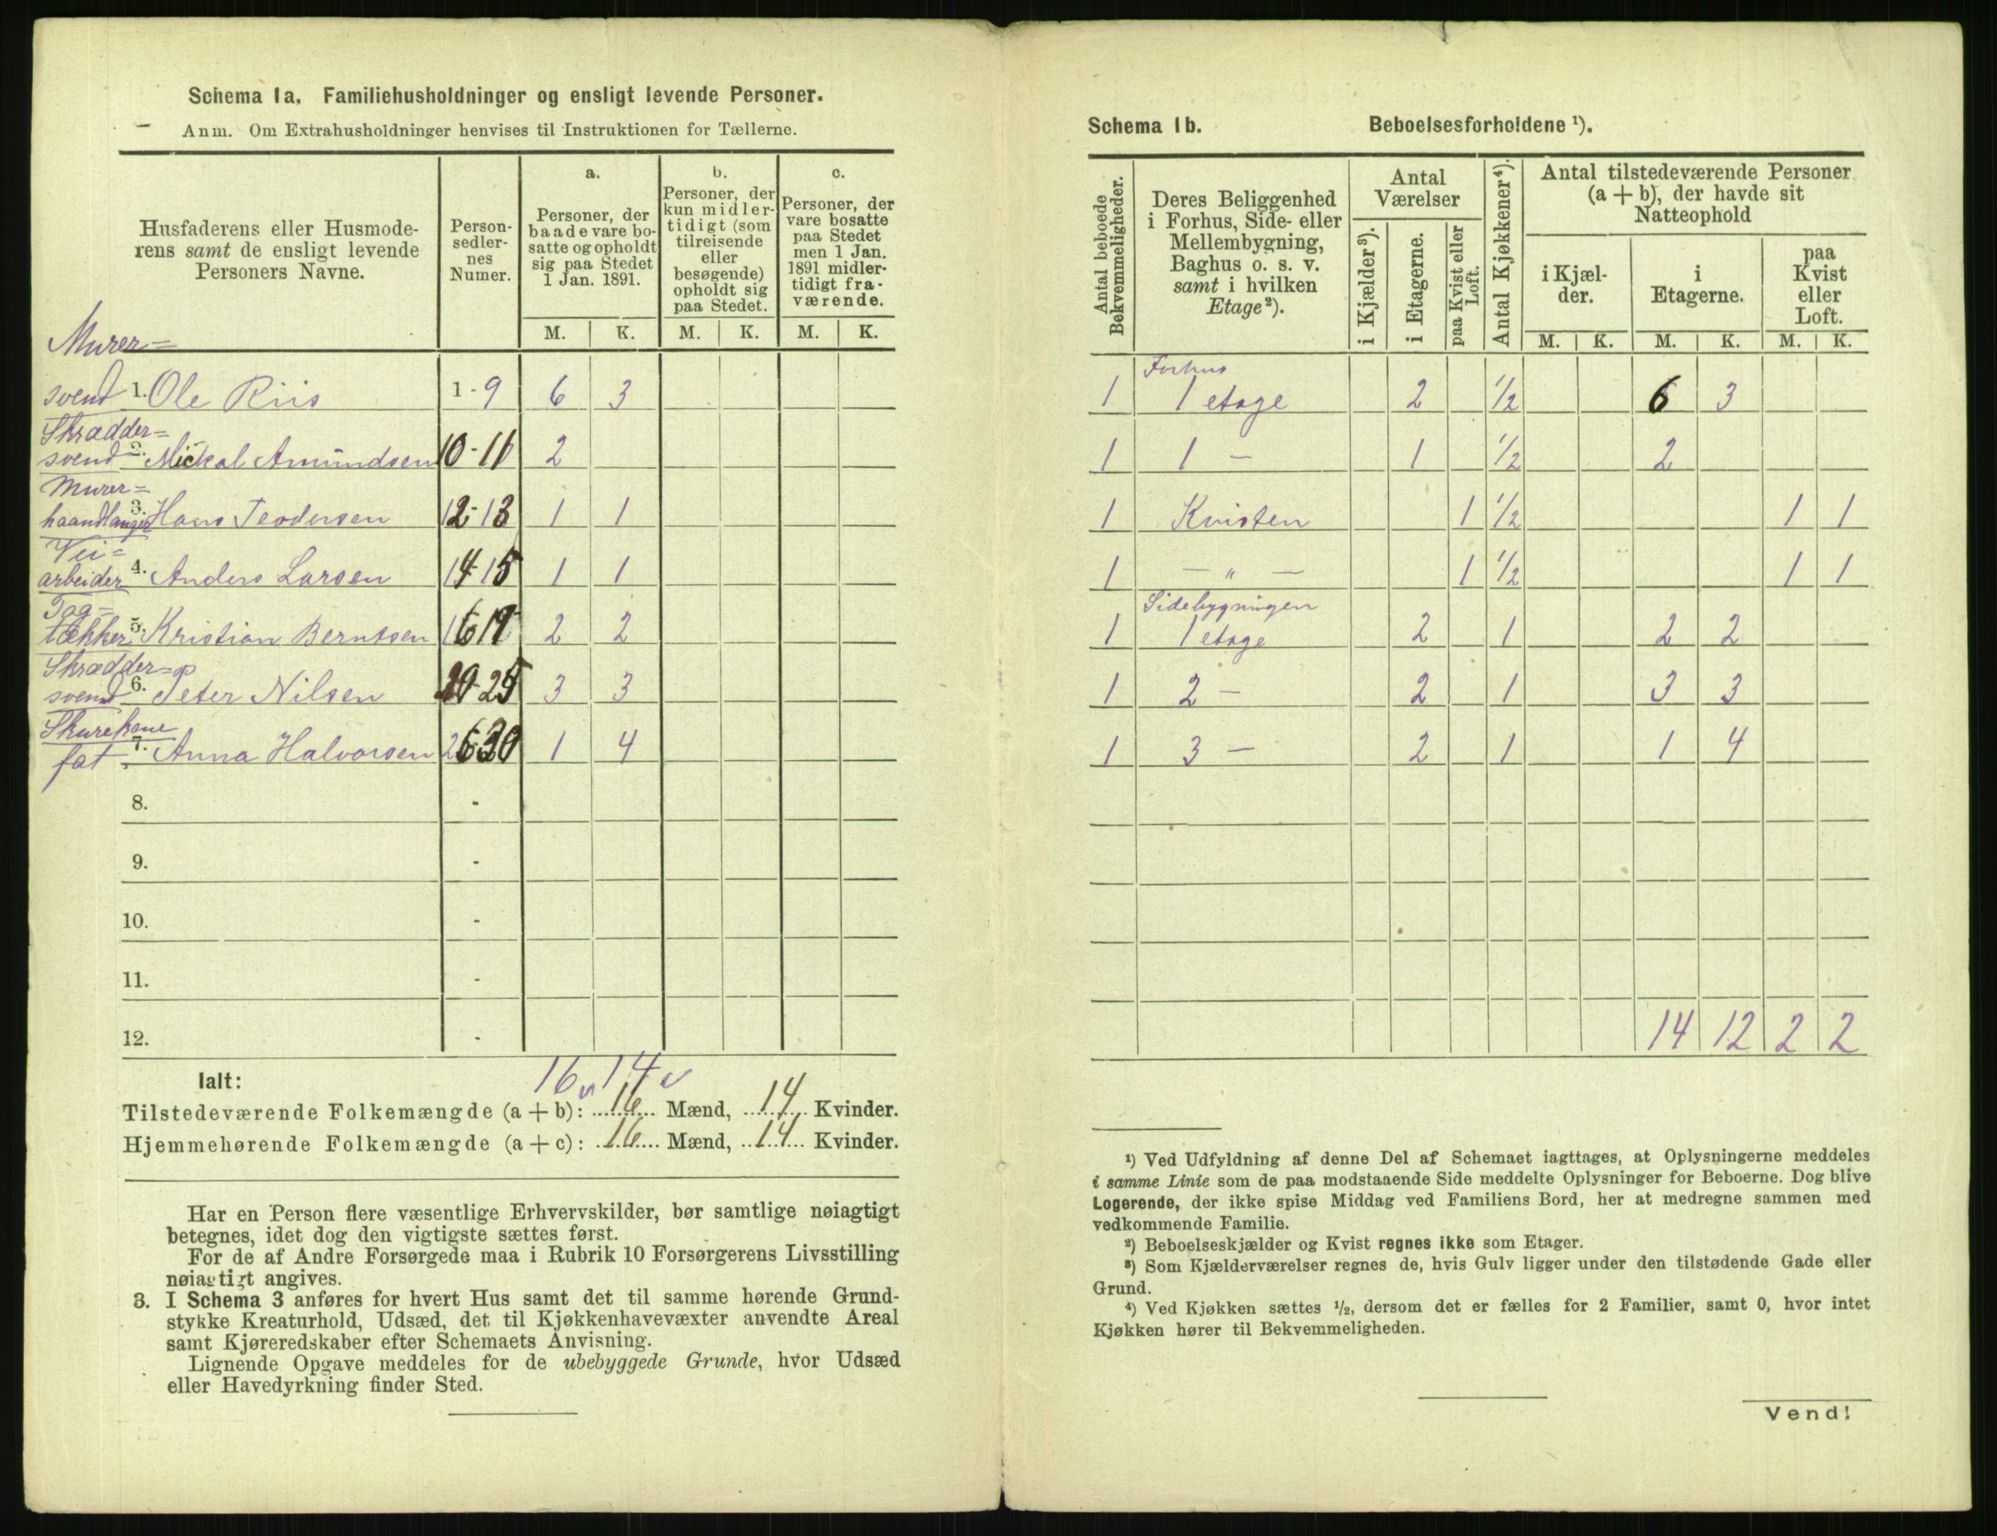 Schema 1a. Familiehusholdninger og ensligt levende Personer.
Anm. Om Extrahusholdninger henvises til Instruktionen for Tællerne.
Husfaderens eller Husmode-
rens samt de ensligt levende
Personers Navne.
Person-
sedler-
nes
Numer.
a.
Personer, der
baade vare bo-
satte og opholdt
sig paa Stedet
1 Jan. 1891.
b.
Personer, der
kun midler-
tidigt (som
tilreisende
eller
besøgende)
opholdt sig
paa Stedet.
c.
Personer, der
vare bosatte
paa Stedet
men 1 Jan.
1891 midler-
tidigt fra-
værende.
M. K. M. K. M. K.
Murer=
svend 1. Ole Riis 1-9 6 3
Skrædder=
svend 2. Mickal Amundsen 10-11 2
Murer=
haandlanger 3. Hans Teodorsen 12-13 1 1
Vei=
arbeider 4. Anders Larsen 14-15 1 1
Tag=
tækker 5. Kristian Berntsen 16-19 2 2
Skrædder=
svend 6. Peter Nilsen 20-25 3 3
Skurekone
fat. 7. Anna Halvorsen 26-30 1 4
8. -
9. -
10. -
11. -
12. -
16 v 14 v
Ialt:
Tilstedeværende Folkemængde (a + b): 16 Mænd, 14 Kvinder.
Hjemmehørende Folkemængde (a + c): 16 Mænd, 14 Kvinder.
Har en Person flere væsentlige Erhvervskilder, bør samtlige nøiagtigt
betegnes, idet dog den vigtigste sættes først.
For de af Andre Forsørgede maa i Rubrik 10 Forsørgerens Livsstilling
nøiagtigt angives.
3. I Schema 3 anføres for hvert Hus samt det til samme hørende Grund-
stykke Kreaturhold, Udsæd, det til Kjøkkenhavevæxter anvendte Areal
samt Kjøreredskaber efter Schemaets Anvisning.
Lignende Opgave meddeles for de ubebyggede Grunde, hvor Udsæd
eller Havedyrkning finder Sted.
Schema 1b. Beboelsesforholdene ¹).
Antal beboede
Bekvemmeligheder.
Deres Beliggenhed
i Forhus, Side- eller
Mellembygning,
Baghus o. s. v.
samt i hvilken
Etage²).
Antal
Værelser
i Kjælder³).
i Etagerne.
paa Kvist eller
Loft.
Antal Kjøkkener⁴).
Antal tilstedeværende Personer
(a + b), der havde sit
Natteophold
i Kjæl-
der.
i
Etagerne.
paa
Kvist
eller
Loft.
M. K. M. K. M. K.
Forhus
1 1 etage 2 1/2 6 3
1 1 — 1 1/2 2
1 Kvisten 1 1/2 1 1
1 — „ — 1 1/2 1 1
Sidebygningen
1 1 etage 2 1 2 2
1 2 — 2 1 3 3
1 3 — 2 1 1 4
14 12 2 2
¹) Ved Udfyldning af denne Del af Schemaet iagttages, at Oplysningerne meddeles
i samme Linie som de paa modstaaende Side meddelte Oplysninger for Beboerne. Dog blive
Logerende, der ikke spise Middag ved Familiens Bord, her at medregne sammen med
vedkommende Familie.
²) Beboelseskjælder og Kvist regnes ikke som Etager.
³) Som Kjælderværelser regnes de, hvis Gulv ligger under den tilstødende Gade eller
Grund.
⁴) Ved Kjøkken sættes ½, dersom det er fælles for 2 Familier, samt 0, hvor intet
Kjøkken hører til Bekvemmeligheden.
Vend!